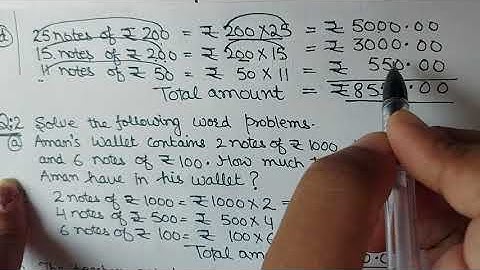 d) 25 notes of ₹ 200 = ₹ 200 × 25 = ₹ 5000.00
15 notes of ₹ 200 = ₹ 200 × 15 = ₹ 3000.00
11 notes of ₹ 50 = ₹ 50 × 11 = ₹ 550.00
Total amount = ₹ 85 .00
Q:2 Solve the following word problems.
@ Aman's wallet contains 2 notes of ₹ 1000
and 6 notes of ₹ 100. How much
Aman have in his wallet?
2 notes of ₹ 1000 = ₹ 1000 × 2 =
4 notes of ₹ 500 = ₹ 500 × 4
6 notes of ₹ 100 = ₹ 100 × 6
Total am